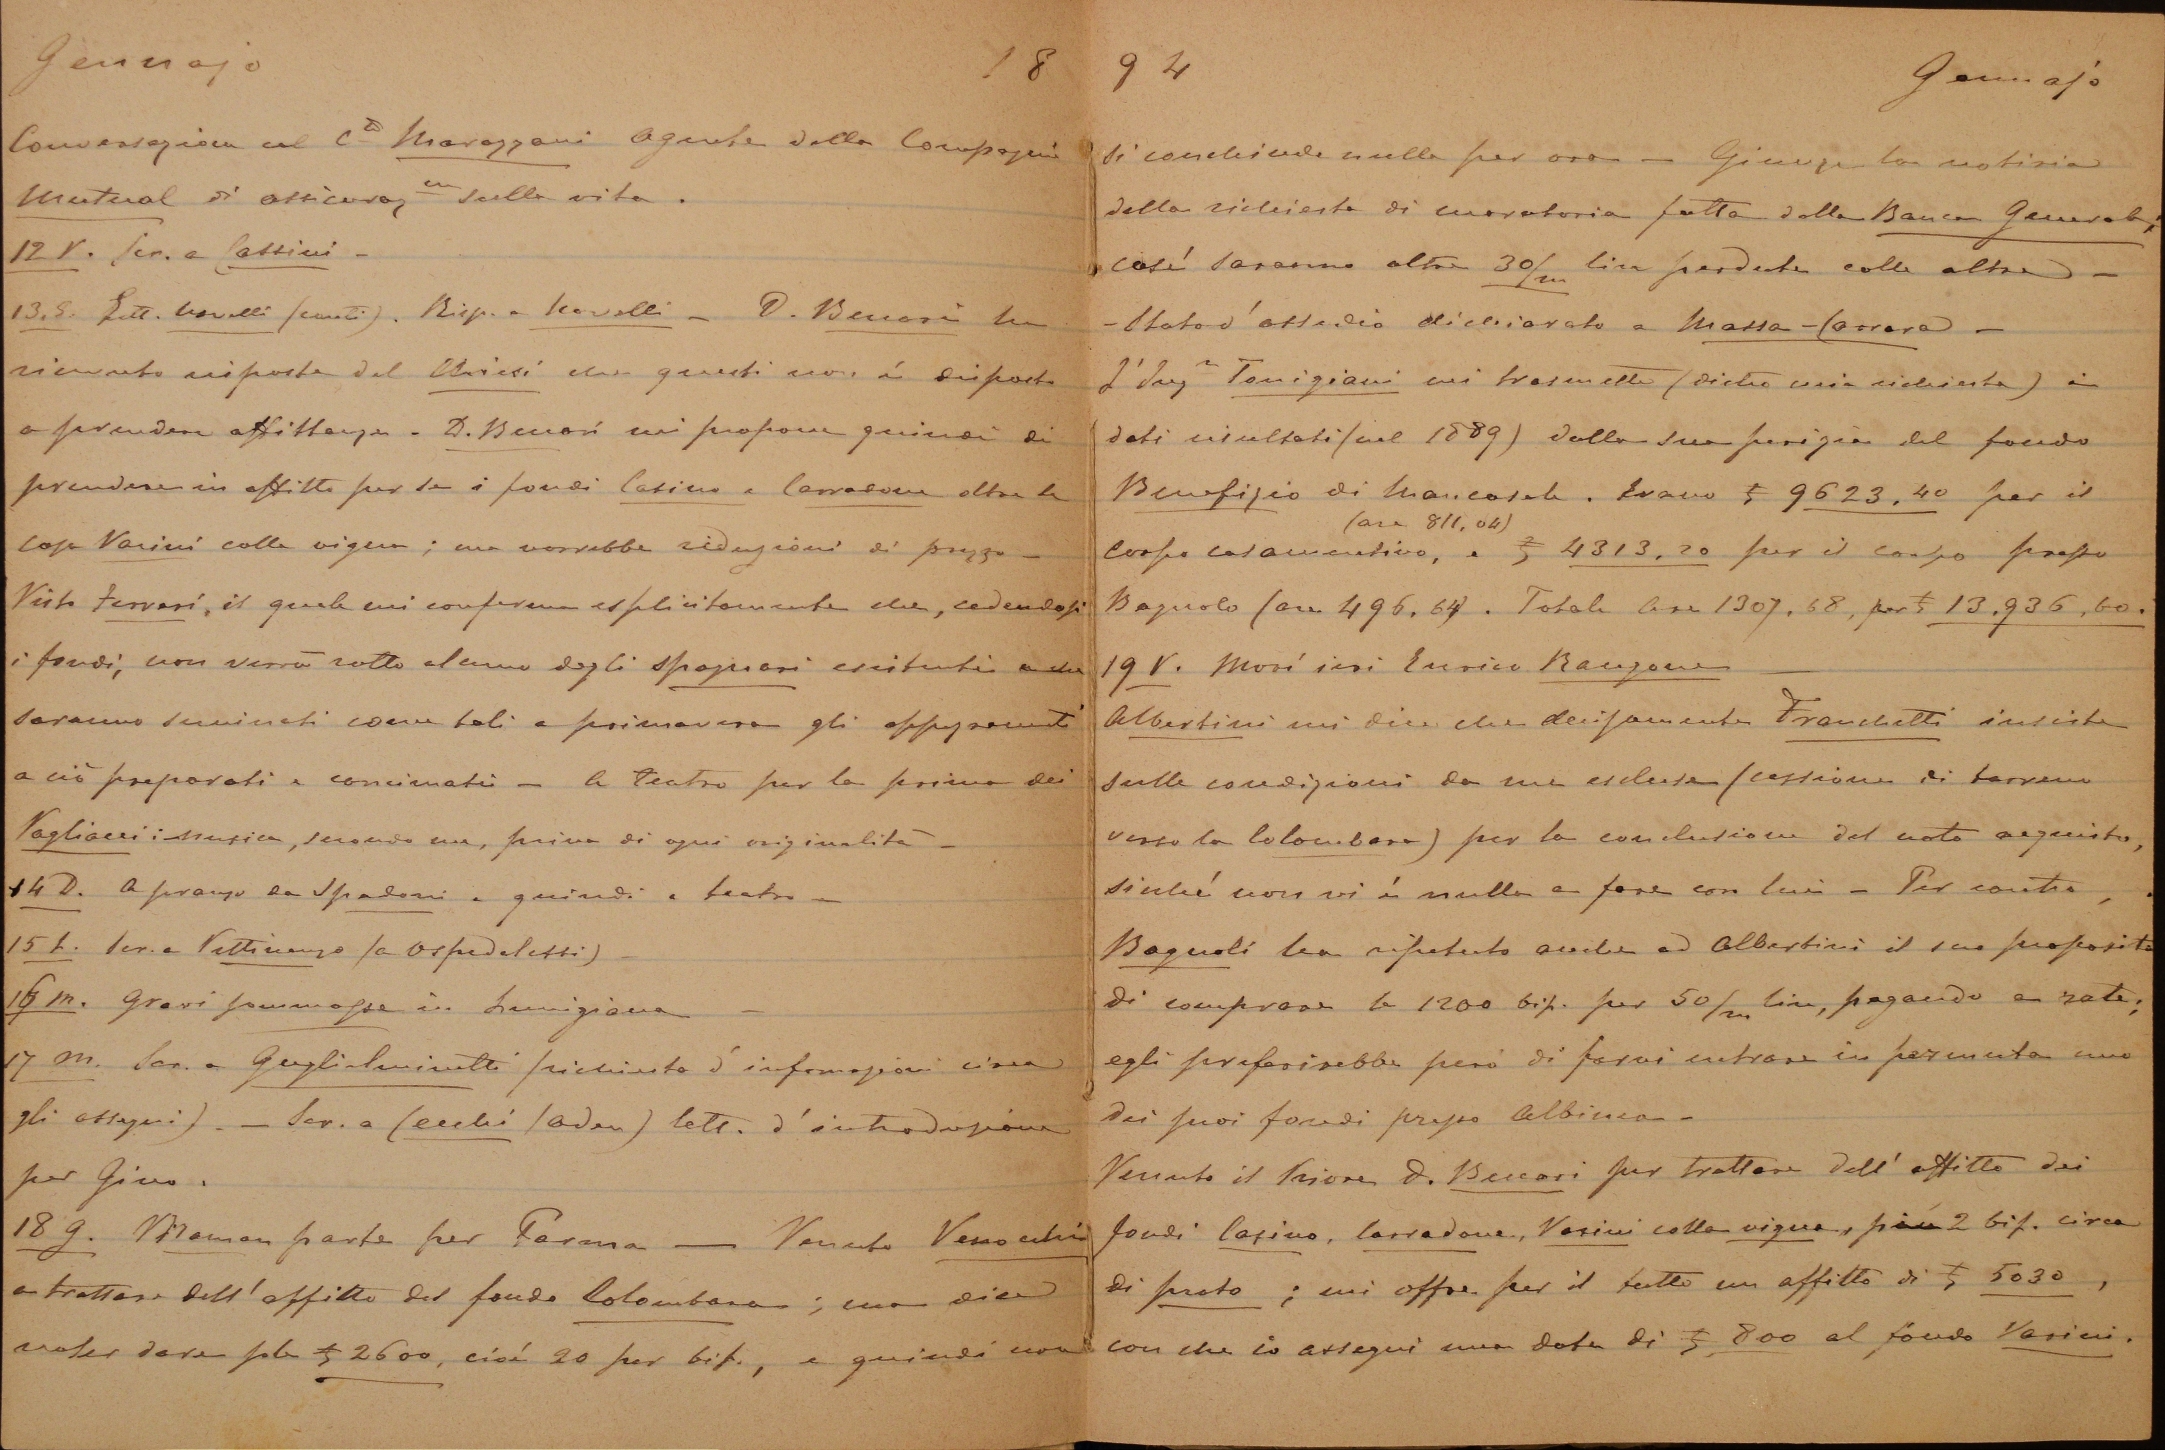 Gennajo 18
Conversazione col C.te Marazzani agente della Compagnia
Mutual di assicuraz.ne sulla vita.
12 V. Scr. a Cassini –
13. S. Lett. Novelli (conti). Risp. a Novelli – D. Benari ha
ricevuto risposta dal Chiesi che questi non è disposto
a prendere affittanze. D. Benari mi propone quindi di
prendere in affitto per se i fondi Casino e Corradone oltre la
casa Varini colla vigna; ma vorrebbe riduzioni di prezzo –
Visto Ferrari, il quale mi conferma esplicitamente che, cedendosi
i fondi, non verrà rotto alcuno degli spagnari esistenti e che
saranno seminati come tali a primavera gli appezzamenti
a ciò preparati e concimati – A teatro per la prima dei
Pagliacci: musica, secondo me, priva di ogni originalità –
14 D. A pranzo da Spadoni e quindi a teatro –
15 L. Scr. a Pettinengo (a Ospedaletti) –
16 M. Gravi sommosse in Lunigiana –
17 M. Scr. a Guglielminetti (richiesta d'informazioni circa
gli assegni). – Scr. a Cecchi (Aden) lett. d'introduzione
per Gino.
18 G. Maman parte per Parma — Venuto
a trattare dell'affitto del fondo Colombara; ma dice
voler dare ₤ 2600, cioè 20 per bif., e quindi non
94 Gennajo
si conchiude nulla per ora – Giunge la notizia
della richiesta di moratoria fatta dalla Banca Generale;
così saranno altre 30/m lire perdute colle altre –
– Stato d'assedio dichiarato a Massa-Carrara –
L'Ing.r Tonigiani mi trasmette (dietro mia richiesta) i
dati risultati (nel 1889) dalla sua perizia del fondo
Benefizio di Mancasale. Erano ₤ 9623,40 per il
(are 811,04)
corpo casamentivo, e ₤ 4313,20 per il corpo presso
Bagnolo (are 496,64). Totale are 1307,68, per ₤ 13.936,60.
19 V. Morì ieri Enrico Rangone —
Albertini mi dice che decisamente Franchetti insiste
sulle condizioni da me escluse (cessione di terreno
verso la Colombara) per la conclusione del noto acquisto,
sicché non vi è nulla a fare con lui – Per contro,
Bagnoli ha ripetuto anche ad Albertini il suo proposito
di comprare le 1200 bif. per 50/m lire, pagando a rate;
egli preferirebbe però di farvi entrare in permuta uno
dei suoi fondi presso Albinea –
Venuto il Priore D. Benari per trattare dell'affitto dei
fondi Casino, Corradone, Varini colla vigna, più 2 bif. circa
di prato; mi offre per il tutto un affitto di ₤ 5030,
con che io assegni una dote di ₤ 800 al fondo Varini.